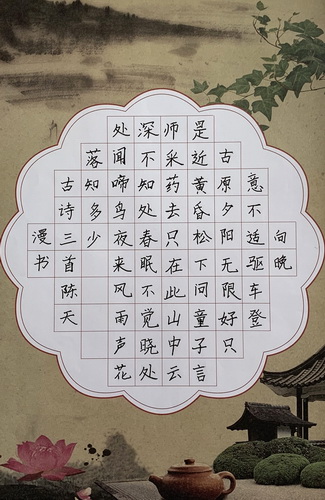 向晚
意不适驱车登
古原夕阳无限好只
是近黄昏松下问童子言
师采药去只在此山中云
深不知处春眠不觉晓处
处闻啼鸟夜来风雨声花
落知多少
古诗三首陈天
漫书